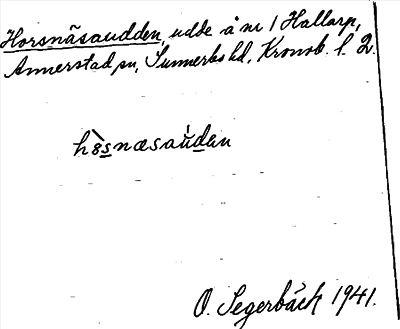 Horsnäsaudden, udde å nr 1 Hallarp,
Annerstad sn, Sunnerbo hd, Kronob. l. 2.
hòsnæsaúden
O. Segerbäck 1941.